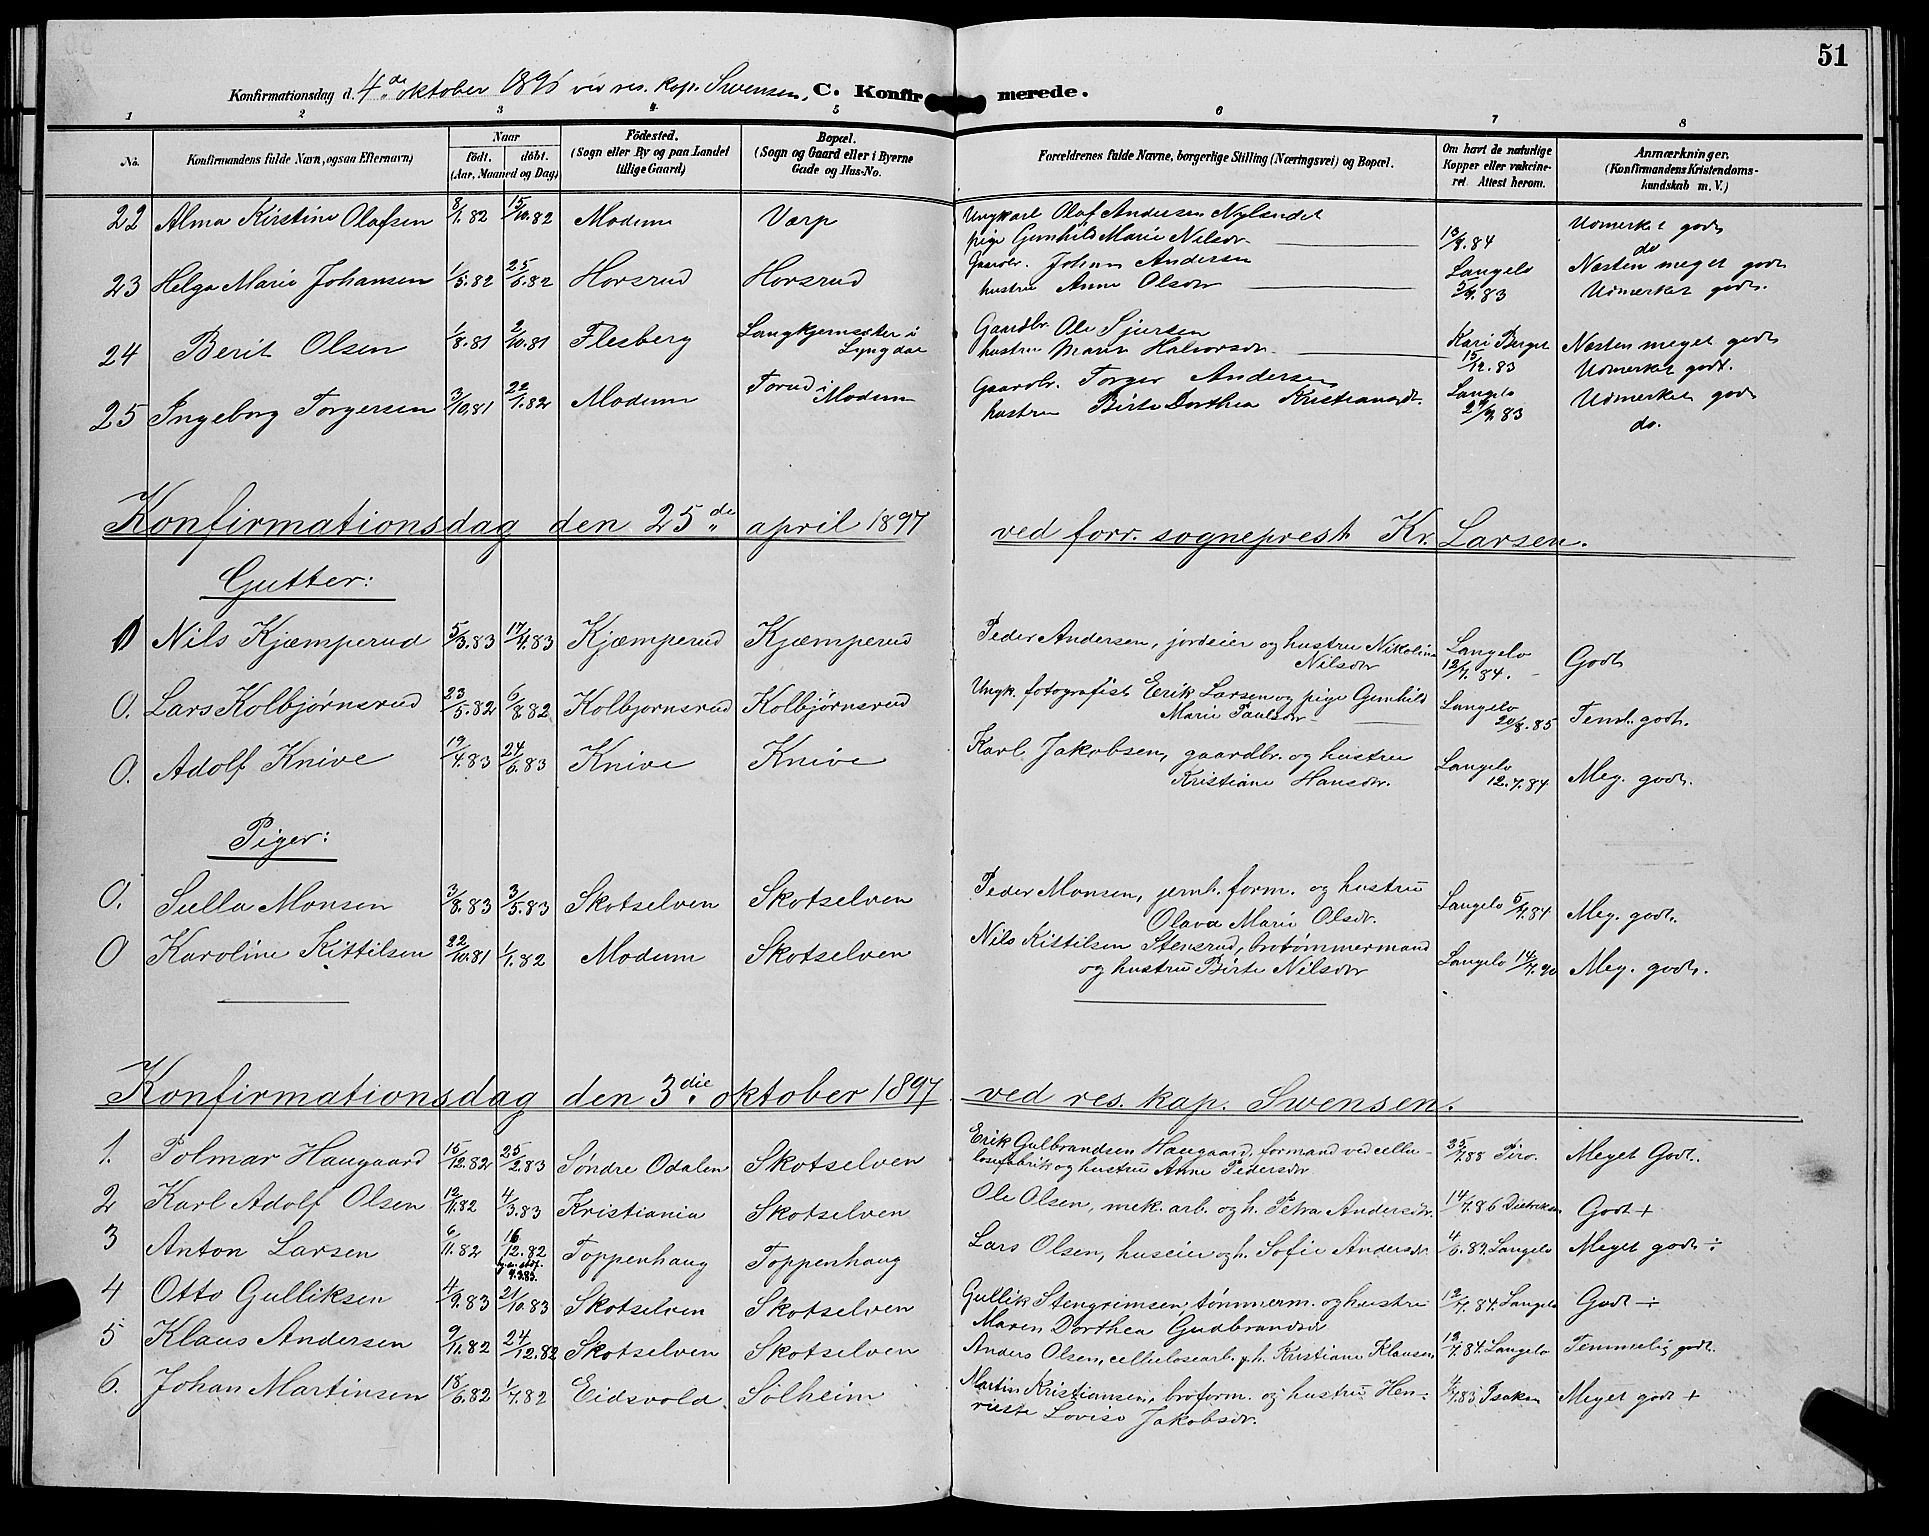 51
Konfirmationsdag d. 4de oktober 1896 ved res. kap. Swensen. C. Konfirmerede.
1 2 3 4 5 6 7 8
No. Konfirmandens fulde Navn, ogsaa Efternavn) Naar födt. döbt. (Aar, Maaned og Dag) Födested. (Sogn eller By og paa Landet tillige Gaard) Bopæl. (Sogn og Gaard eller i Byerne Gade og Hus-No. Forældrenes fulde Navne, borgerlige Stilling (Næringsvei) og Bopæl. Om havt de naturlige Kopper eller vakcineret. Attest herom. Anmærkninger. (Konfirmandens Kristendomskundskab m. V.)
22 Alma Kirstine Olafsen 8/1.82 15/10.82 Modum Værp Ungkarl Olaf Andersen Nylandet
pige Gunhild Marie Nilsdr. 13/9.84 Udmerket godt do
23 Helga Marie Johansen 1/5.82 25/6.82 Horsrud Horsrud Gaardbr. Johan Andersen
hustru Anne Olsdr Langelo 5/9.83 Næsten meget godt Udmerket godt.
24 Berit Olsen 1/8.81 2/10.81 Flesberg Langkjernsæter i Lyngdal Gaardbr. Ole Sjursen
hustru Maren Halvorsdr. Kari Berget 15/12.83 Næsten meget godt Udmerket godt.
25 Ingeborg Torgersen 3/10.81 22/1.82 Modum Torud i Modum Gaardbr. Torger Andersen
hustru Birte Dorthea Kristiansdt. Langelo 27/9.83 Udmerket godt do.
Konfirmationsdag den 25de april 1897 ved forr. sogneprest Kr. Larsen.
Gutter:
0 Nils Kjæmperud 5/3.83 17/4.83 Kjæmperud Kjæmperud Peder Andersen, jordeier og hustru Nikoline
Nilsdr Langelo 12/7.84. Godt
0. Lars Kolbjørnsrud 23/5.82 6/8.82 Kolbjørnsrud Kolbjørnsrud Ungk. fotografist Erik Larsen og pige Gunhild
Marie Paulsdr Langelo 20/8.85 Teml. godt.
0. Adolf Knive 19/4.83 24/6.83 Knive Knive Karl Jakobsen, gaardbr. og hustru
Kristiane Hansdr. Langelo 12.7.84 Meg. godt.
Piger:
0. Sulla Monsen 3/8.83 3/5.83 Skotselven Skotselven Peder Monsen, jernb. form. og hustru
Olava Marie Olsdr. Langelo 5/9.84 Meg. godt.
0 Karoline Kittilsen 22/10.81 1/1.82 Modum Skotselven Nils Kittilsen Stensrud, brotømmermand
og hustru Birte Nilsdr Langelo 14/7.90 Meg. godt.
Konfirmationsdag den 3die oktober 1897 ved res. kap. Swensen.
1. Polmar Haugaard 15/12.82 25/2.83 Søndre Odalen Skotselven Erik Gulbrandsen Haugaard, formand ved cellulosefabrik og hustru Anne Pedersdr 25/7.88 Piro. Meget Godt.
2 Karl Adolf Olsen 12/11.82 4/3.83 Kristiania Skotselven Ole Olsen, mek. arb. og h. Petra Andersdr. 14/7.86 Godt +
3 Anton Larsen 6/11.82 16/12.82 4.3.83. Toppenhaug Toppenhaug Lars Olsen, huseier og h. Sofie Andersdr 4/6.83. Langelo Meget godt ÷
4 Otto Gulliksen 4/9.83 21/10.83 Skotselven Skotselven Gullik Stengrimsen, tømmerm. og hustru
Maren Dorthea Gudbrandsd 12/7.84. Langelo Godt ÷
5 Klaus Andersen 9/11.82 24/12.82 Skotselven Skotselven Anders Olsen, cellulosearb. og h. Kristiane Klausen, 12/7.84. Langelo Temmelig godt.
6. Johan Martinsen 18/6.82 1/7.82 Eidsvold Solheim Martin Kristiansen, broform. og hustru Henriette Lovise Jakobsdr. 4/7.83 Isaksen Meget godt +